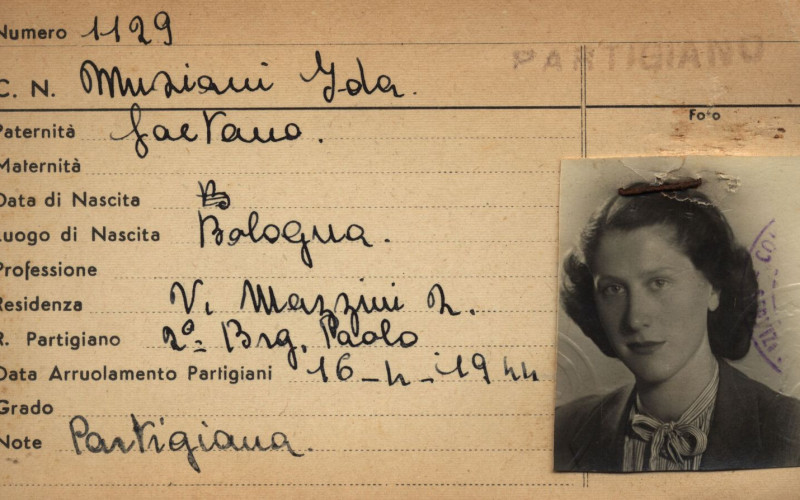 Numero 1129
PARTIGIANO
C. N. Musiani Ida.
Foto
Paternità Gaetano.
Maternità
Data di Nascita
Luogo di Nascita Bologna.
Professione
Residenza V. Mazzini 2.
R. Partigiano 2º Brg. Paolo
Data Arruolamento Partigiani 16-4-1944
Grado
Note Partigiana.